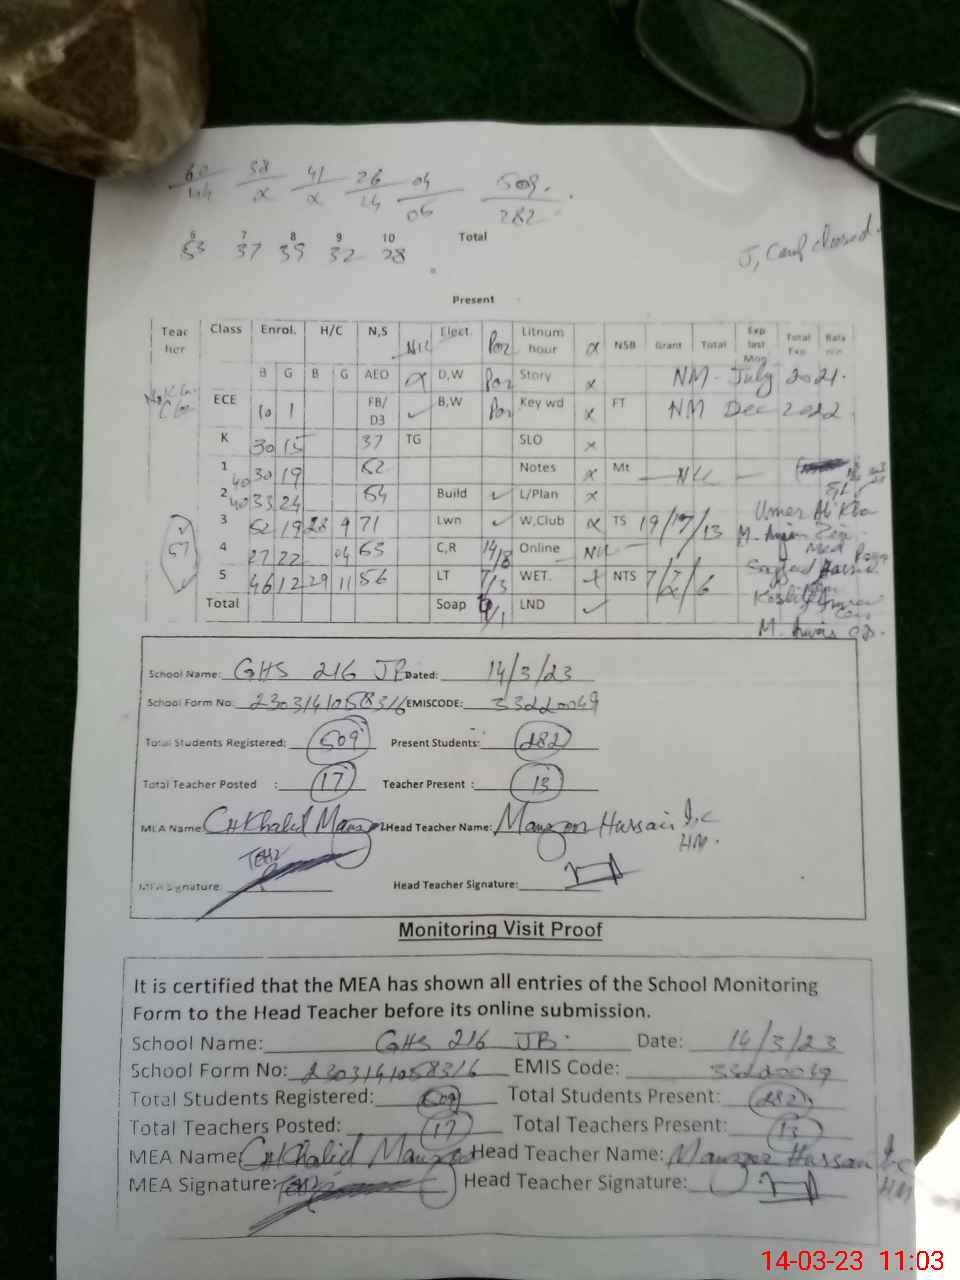 60 38 41 26 04 509.
α α 24 06 282
6 7 8 9 10 Total
53 37 39 32 28
J, Camp closed.
Present
Teac her Class Enrol. H/C N,S NIL Elect. Por Litnum hour α NSB Grant Total Exp last Mon Total Exp
B G B G AEO α D,W Por Story x NM - July 2021.
ECE 10 1 FB/ D3 ✓ B,W Por Key wd x FT NM Dec 2022
K 30 15 37 TG SLO x
1 40 30 19 52 Notes x Mt NIL
2 40 33 24 54 Build ✓ L/Plan x
3 52 19 28 9 71 Lwn ✓ W,Club α TS 19/17/13 Umer Ali
4 27 22 04 63 C,R 14/8 Online NIL
5 46 12 29 11 56 LT 7/3 WET. x NTS 7/7/6
Total Soap LND ✓
M. Awais
School Name: GHS 216 JB Dated: 14/3/23
School Form No: 230314105831/6 EMISCODE: 33220049
Total Students Registered: 509 Present Students: 282
Total Teacher Posted : 17 Teacher Present : 13
MEA Name: CH Khalid Manzor Head Teacher Name: Manzoor Hussain I/c
HM.
MEA Signature: Head Teacher Signature:
Monitoring Visit Proof
It is certified that the MEA has shown all entries of the School Monitoring
Form to the Head Teacher before its online submission.
School Name: GHS 216 JB. Date: 14/3/23
School Form No: 2303141058316 EMIS Code: 33220049
Total Students Registered: 509 Total Students Present: 282
Total Teachers Posted: 17 Total Teachers Present: 13
MEA Name: CH Khalid Manzor Head Teacher Name: Manzoor Hussain I/c
HM
MEA Signature: Head Teacher Signature:
14-03-23 11:03